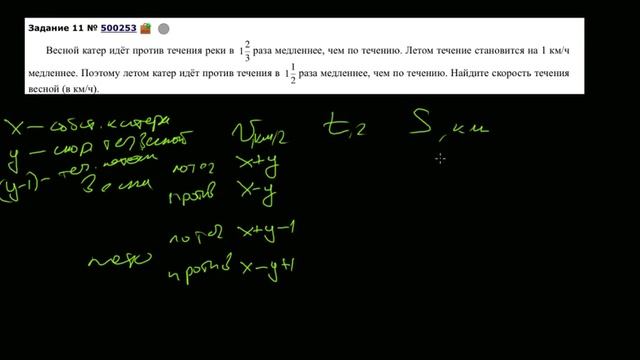 Задание 11 № 500253
Весной катер идёт против течения реки в 1 2/3 раза медленнее, чем по течению. Летом течение становится на 1 км/ч
медленнее. Поэтому летом катер идёт против течения в 1 1/2 раза медленнее, чем по течению. Найдите скорость течения
весной (в км/ч).
x — собст. катера
V, км/ч t, ч S, км
y — скор теч весной
(y-1) — теч. летом
Весна
по теч x+y
против x-y
по теч x+y-1
лето
против x-y+1